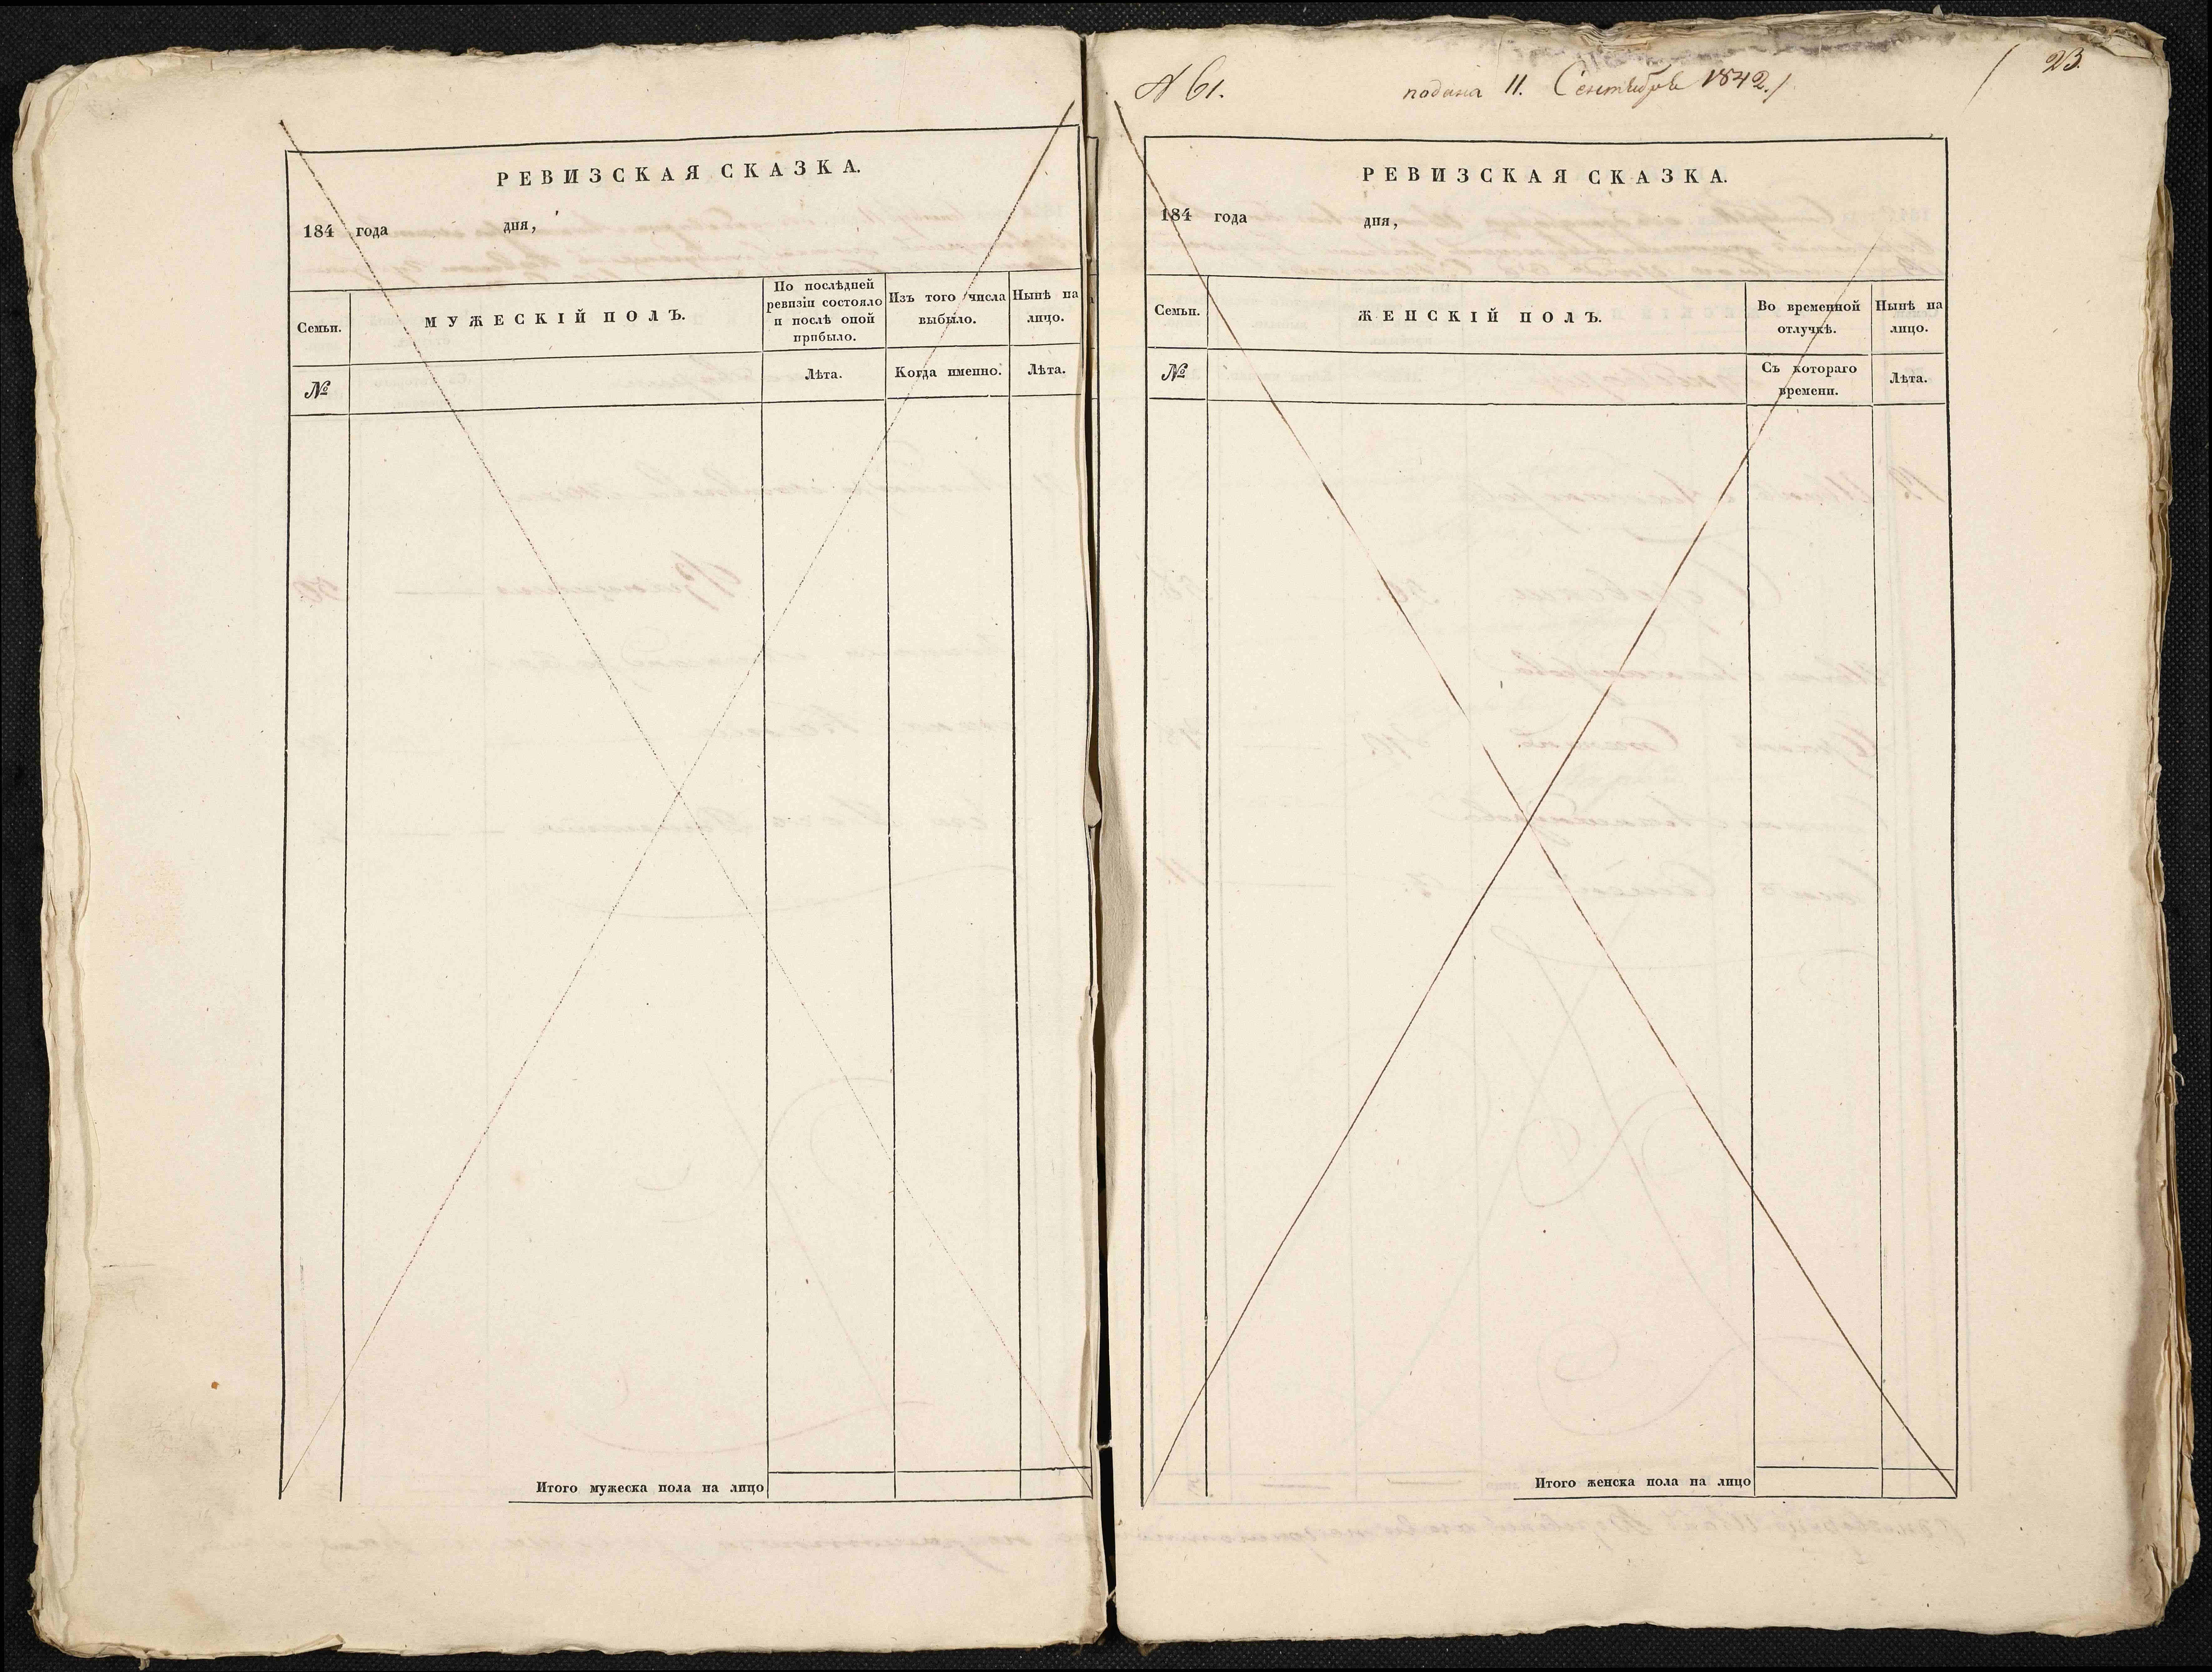 РЕВИЗСКАЯ СКАЗКА.
184 года дня,
Семьи. МУЖЕСКІЙ ПОЛЪ. По послѣдней ревизіи состояло и послѣ оной прибыло. Изъ того числа выбыло. Нынѣ на лицо.
№ Лѣта. Когда именно. Лѣта.
Итого мужеска пола на лицо
№ 61. подана 11. Сентября 1842. / / 23.
РЕВИЗСКАЯ СКАЗКА.
184 года дня,
Семьи. ЖЕНСКІЙ ПОЛЪ. Во временной отлучкѣ. Нынѣ на лицо.
№ Съ котораго времени. Лѣта.
Итого женска пола на лицо